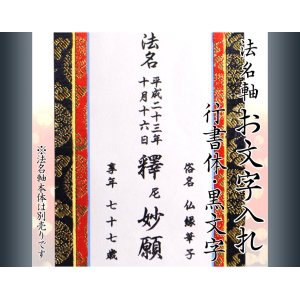 法名軸 お文字入れ
行書体・黒文字
俗名 仏縁華子
法名
平成二十三年
十月十六日
釋尼妙願
享年 七十七歳
※法名軸本体は別売りです